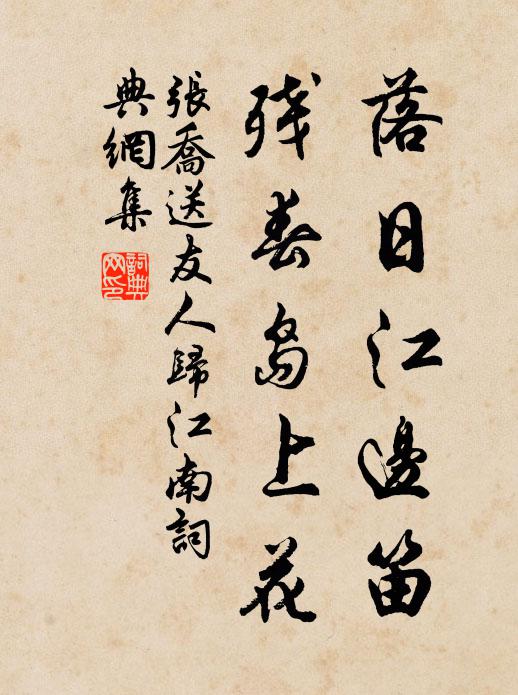 落日江邊笛
残春島上花
張喬送友人歸江南詞
典網集
詞典
网印